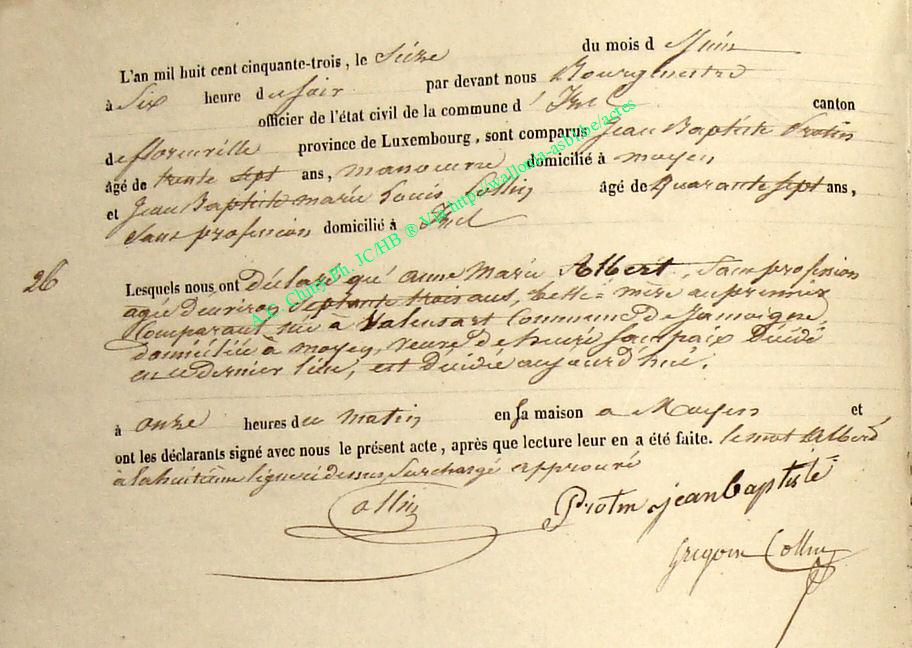 L'an mil huit cent cinquante-trois, le Seize du mois d e Juin
à Six heure du Soir par devant nous Bourgmestre
officier de l'état civil de la commune d' Izel canton
de florenville province de Luxembourg, sont comparus Jean Baptiste Protin
âgé de trente Sept ans, manoeuvre domicilié à moyen
et Jean Baptiste marie Louis Collin âgé de Quarante Sept ans,
Sans profession domicilié à Izel
26
Lesquels nous ont déclaré qu' anne Marie Albert, Sans profession
agée d'environ Septante trois ans, belle-mère au premier
Comparant née à Valensart Commune de Jamoigne
domiciliée à moyen, veuve de henri décédé
en ce dernier lieu, est décédée aujourd'hui.
à onze heures du matin en Sa maison a Moyen et
ont les déclarants signé avec nous le présent acte, après que lecture leur en a été faite. le mot Albert
à la huitième ligne ci dessus Surchargé approuvé
Collin
Protin jean baptiste
Gregoire Collin
A.E. Chiny Ph. JC/HB ® Via http://wallonia-asbl.be/actes